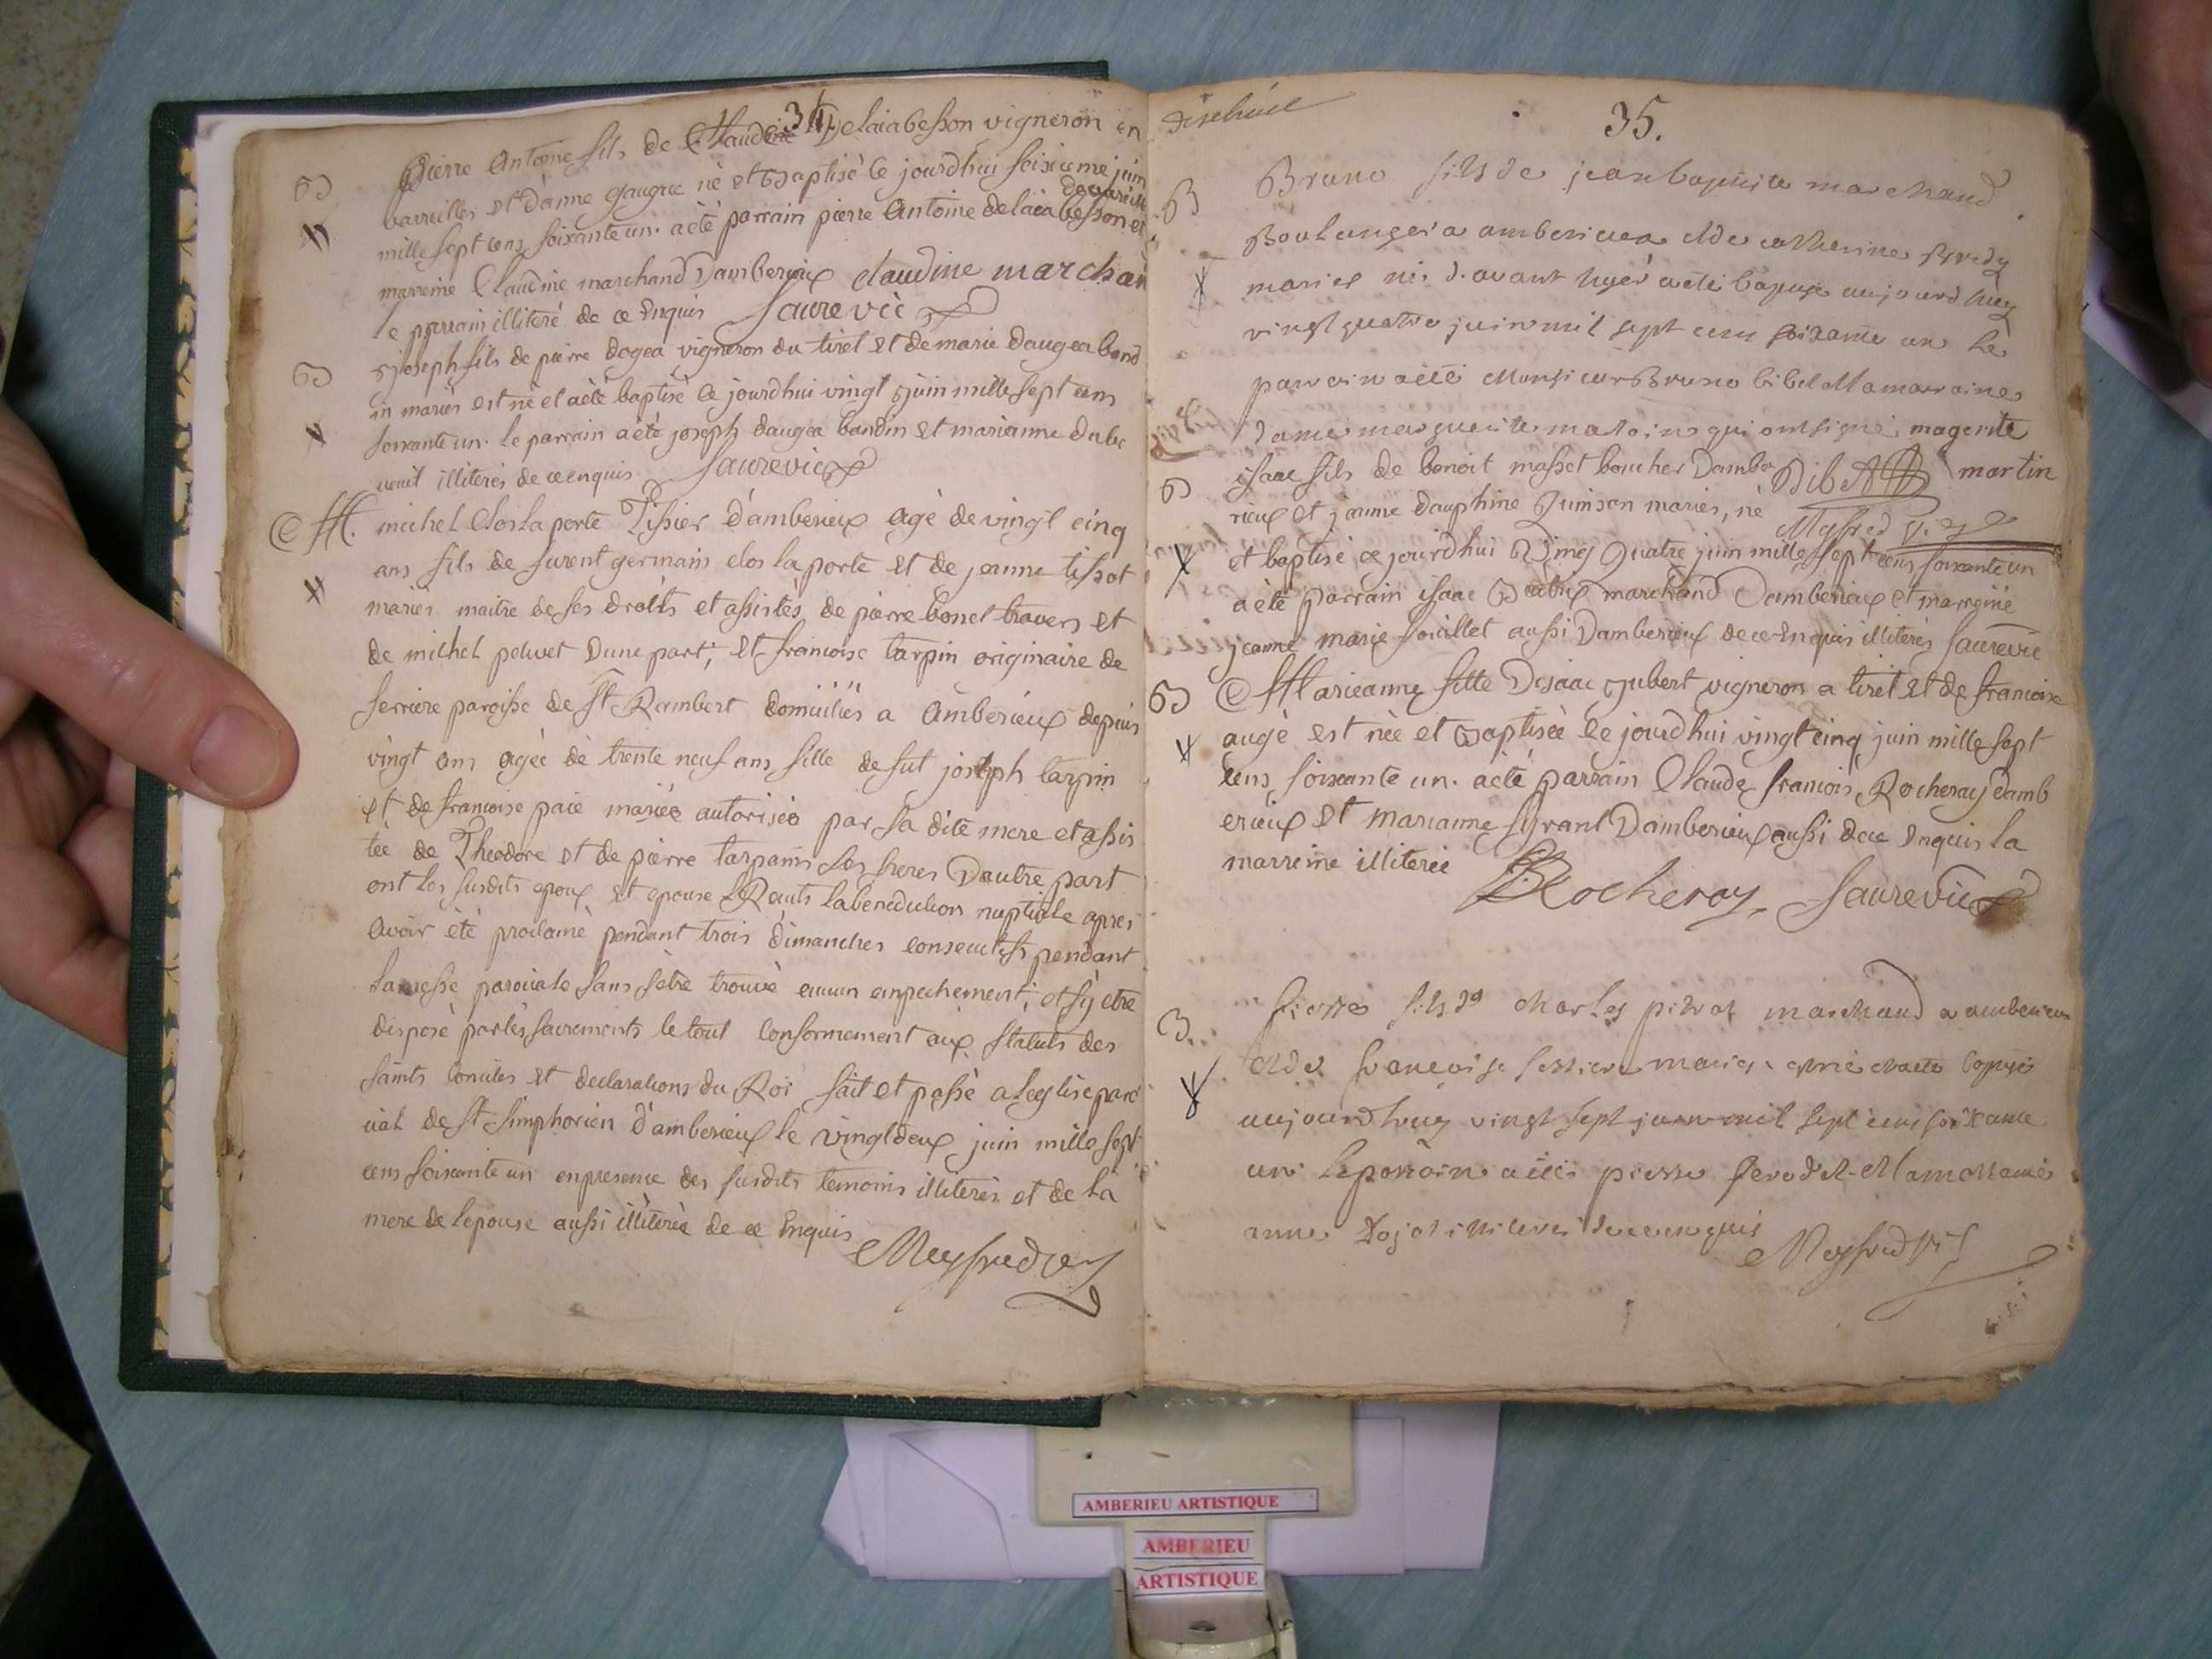 34.
Pierre Antoine fils de Claude Delaiabesson vigneron en
bareilles et d'anne gaugue né et Baptisé ce jourdhui seixieme juin
mille sept cens soixante un. a été parrain pierre Antoine delaiabesson et
marreine Claudine marchand Damberieux claudine marchan
le parrain illiteré de ce Enquis faurevic
B
joseph fils de pierre dogea vigneron du tiret et de marie daugea band
in mariés est né et a été baptisé ce jourdhui vingt juin mille sept cens
soixante un. le parrain a été joseph daugea bandin et marianne dube
illiterés de ce enquis faurevic
B
M. michel Clos la porte Tissier d'amberieux agé de vingt cinq
ans fils de germain clos la porte et de jeanne tissot
mariés maitre de ses droits et assistés de pierre bonet travers et
de michel peluet Dune part, et francoise tarpin originaire de
serriere paroisse de St Rambert domiciliés a Amberieux depuis
vingt ans agée de trente neuf ans fille de fut joseph tarpin
et de francoise paie mariés autorisée par sa dite mere et assis
tée de Theodore et de pierre ses freres Dautre part
ont les susdits epoux et epouse la benediction nuptiale apres
avoir été proclamé pendant trois dimanches consecutifs pendant
la messe paroiciale sans sêtre trouvé aucun empechement, et sÿ etre
disposé par les sacrements le tout conformement aux Statuts des
saints conciles et declarations du Roi fait et passé a leglise paro
cial de St simphorien d'amberieux le vingt deux juin mille sept
cens soixante un en presence des susdits temoins illiterés et de la
mere de lepouse aussi illiterée de ce Enquis
35.
Bruno fils de jean baptiste marchand
Boulanger a amberieux et de catherine
mariés né d. avant hyer a été baptisé aujourdhuy
vingt quatre juin mil sept cens soixante un le
parrain a été Monsieur Bruno bibet et la marraine
dame marguerite martin qui ont signé magerite
martin
B
isaac fils de benoit masset boucher Dambe
rieux et jeanne dauphine mariés, né
et baptisé ce jourdhui Vingt Quatre juin mille sept cens soixante un
a été Parrain isaac marchand Damberieux et marreine
jeanne marie aussi Damberieux de ce Enquis illiterés faurevic
B
Marieanne fille Disaac jubert vigneron a tiret et de francoise
augé est née et Baptisée le jourdhui vingt cinq juin mille sept
cens soixante un. a été parrain Claude francois Rocheray damb
erieux et marianne Damberieux aussi de ce Enquis la
marreine illiterée
Rocheray faurevic
B
pierre fils de charles marchand a amberieux
et de francoise mariés né et a été baptisé
aujourdhuy vingt sept juin mil sept cens soixante
un le parrain a été pierre et la marraine
anne illiterés de ce enquis
AMBERIEU ARTISTIQUE
AMBERIEU
ARTISTIQUE